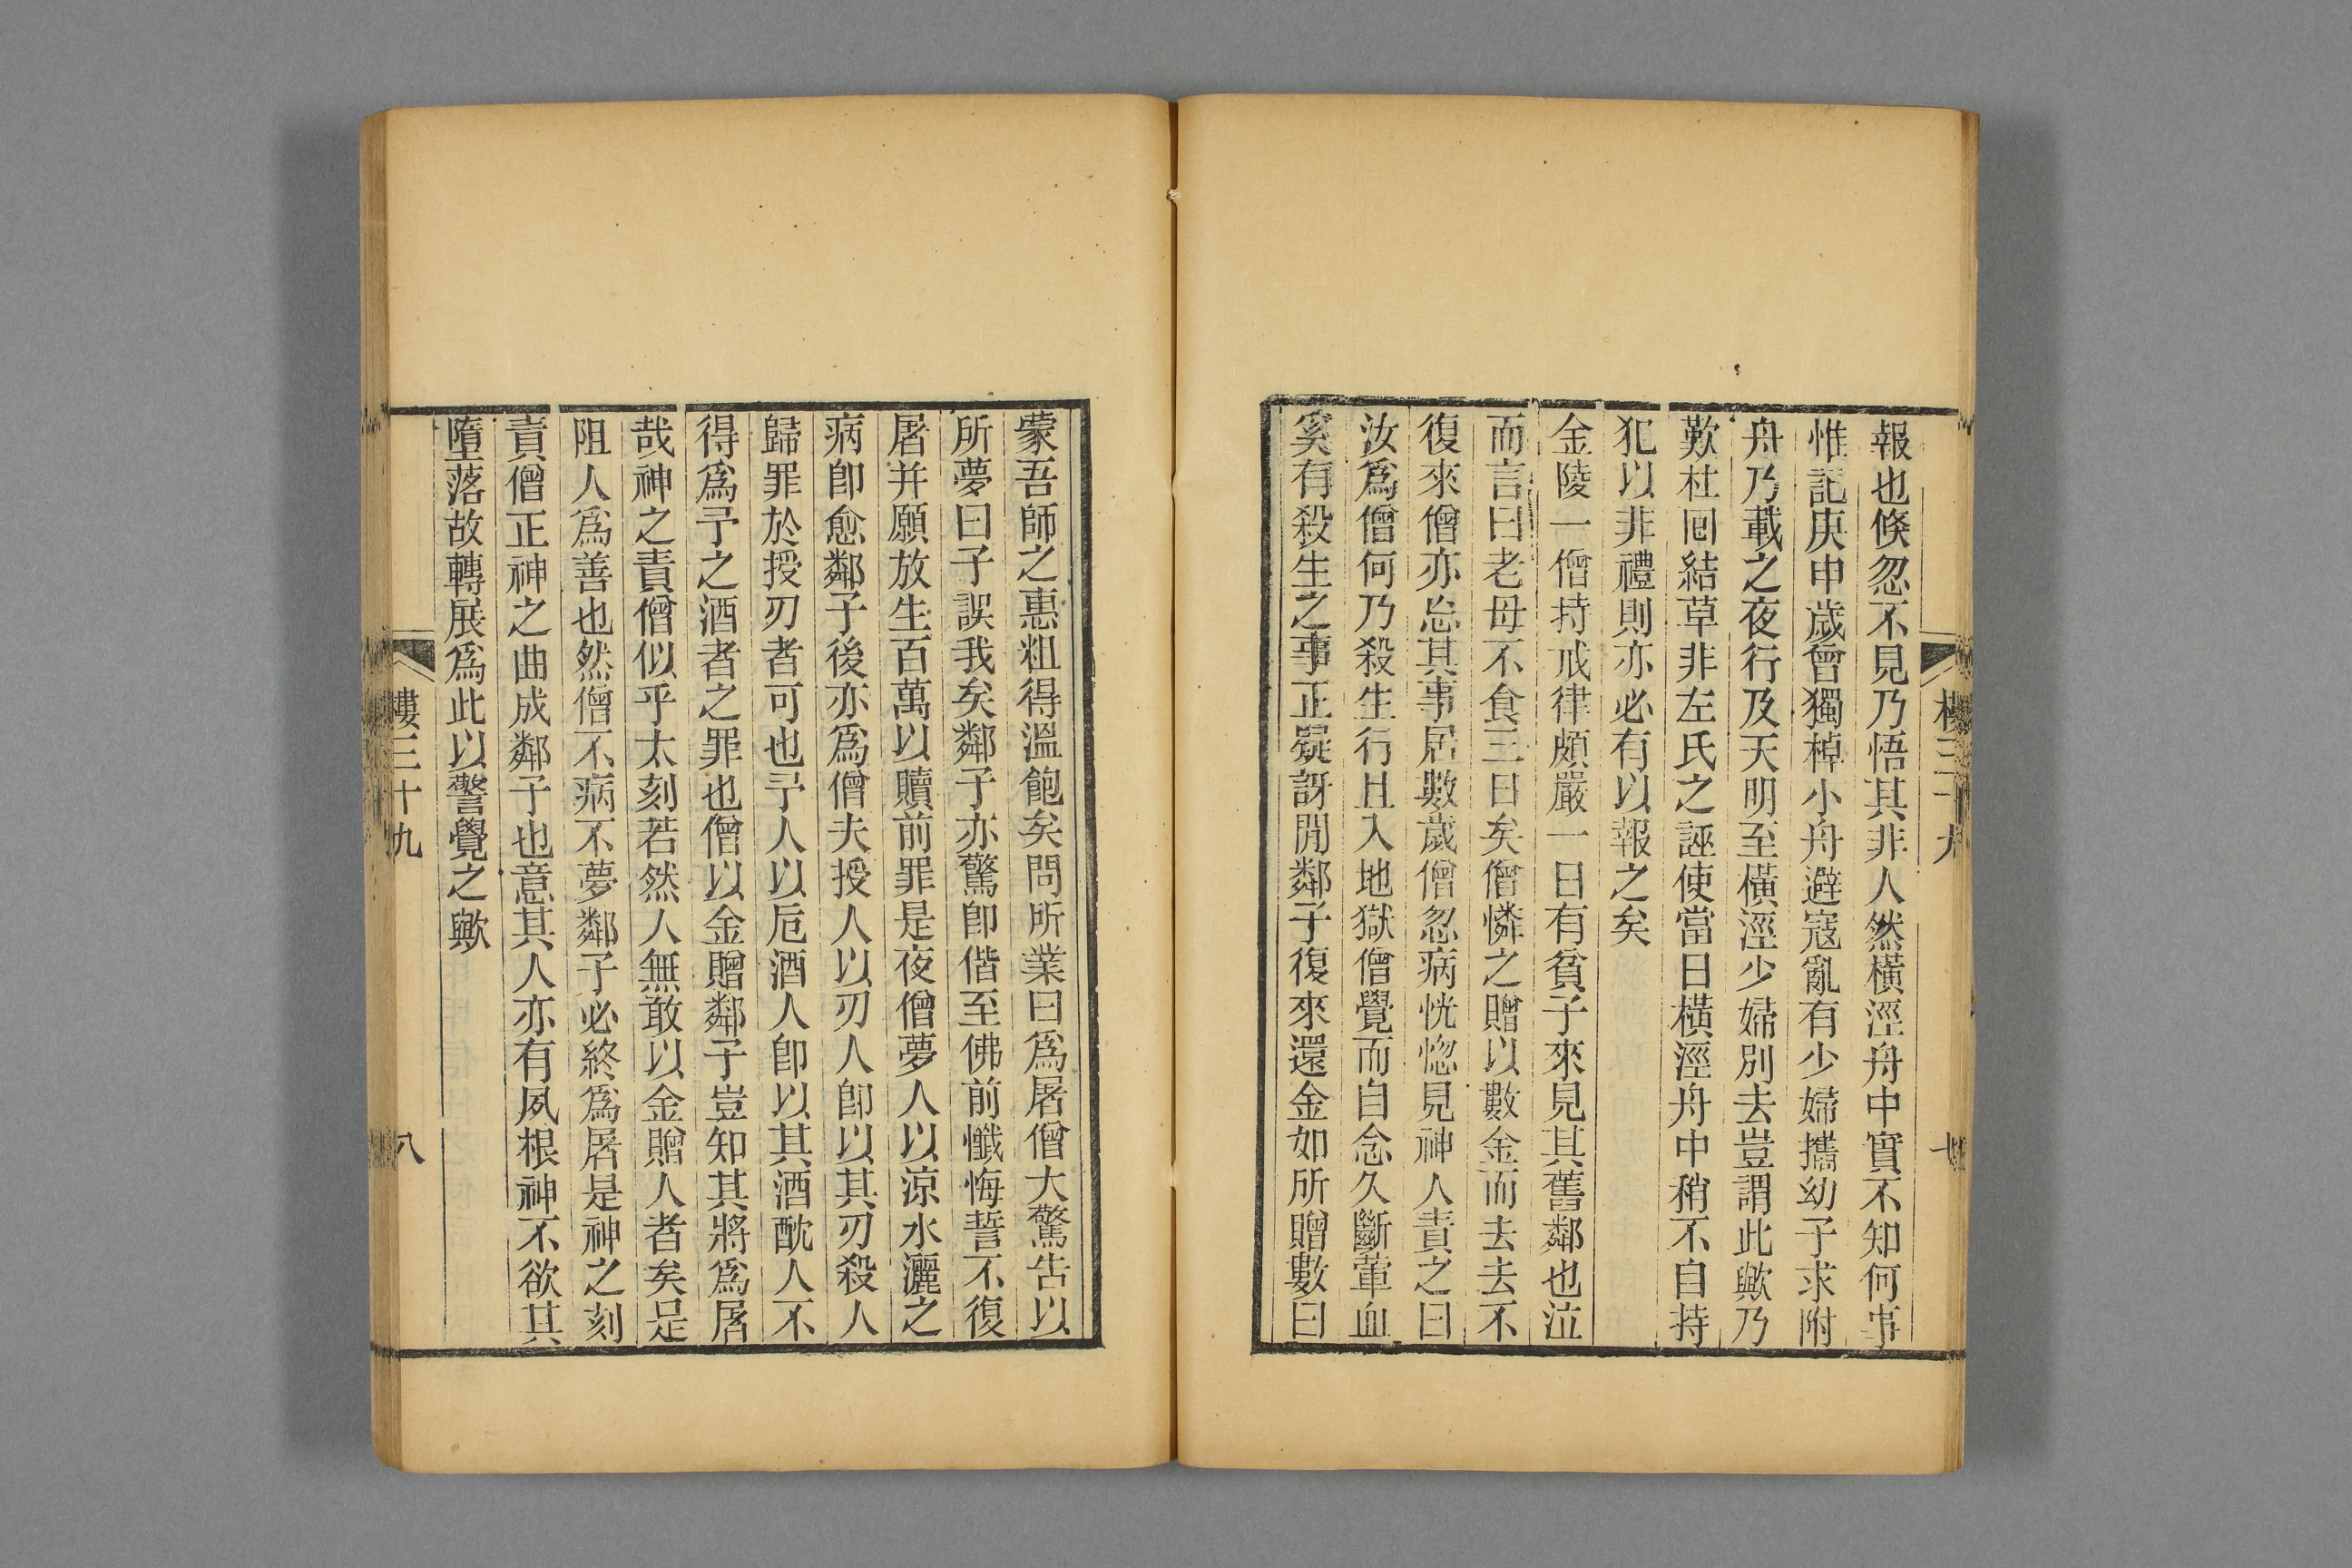 樓三十九
七
報也倐忽不見乃悟其非人然橫涇舟中實不知何事
惟記庚申歲曾獨棹小舟避寇亂有少婦攜幼子求附
舟乃載之夜行及天明至橫涇少婦別去豈謂此歟乃
歎杜囘結草非左氏之誣使當日橫涇舟中稍不自持
犯以非禮則亦必有以報之矣
金陵一僧持戒律頗嚴一日有貧子來見其舊鄰也泣
而言曰老母不食三日矣僧憐之贈以數金而去去不
復來僧亦忘其事居數歲僧忽病恍惚見神人責之曰
汝爲僧何乃殺生行且入地獄僧覺而自念久斷葷血
奚有殺生之事正疑訝閒鄰子復來還金如所贈數曰
蒙吾師之惠粗得溫飽矣問所業曰爲屠僧大驚告以
所夢曰子誤我矣鄰子亦驚卽偕至佛前懺悔誓不復
屠并願放生百萬以贖前罪是夜僧夢人以涼水灑之
病卽愈鄰子後亦爲僧夫授人以刃人卽以其刃殺人
歸罪於授刃者可也予人以卮酒人卽以其酒酖人不
得爲予之酒者之罪也僧以金贈鄰子豈知其將爲屠
哉神之責僧似乎太刻若然人無敢以金贈人者矣是
阻人爲善也然僧不病不夢鄰子必終爲屠是神之刻
責僧正神之曲成鄰子也意其人亦有夙根神不欲其
墮落故轉展爲此以警覺之歟
樓三十九
八